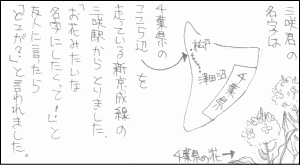 三咲君の
名字は
千葉県の
ココら辺を
走っている新京成線の
三咲駅からとりました。
「お花みたいな
名字にしたくって!」と
友人に言ったら
「どこが?」と言われました。
松戸
津田沼
千葉県
千葉県の花→